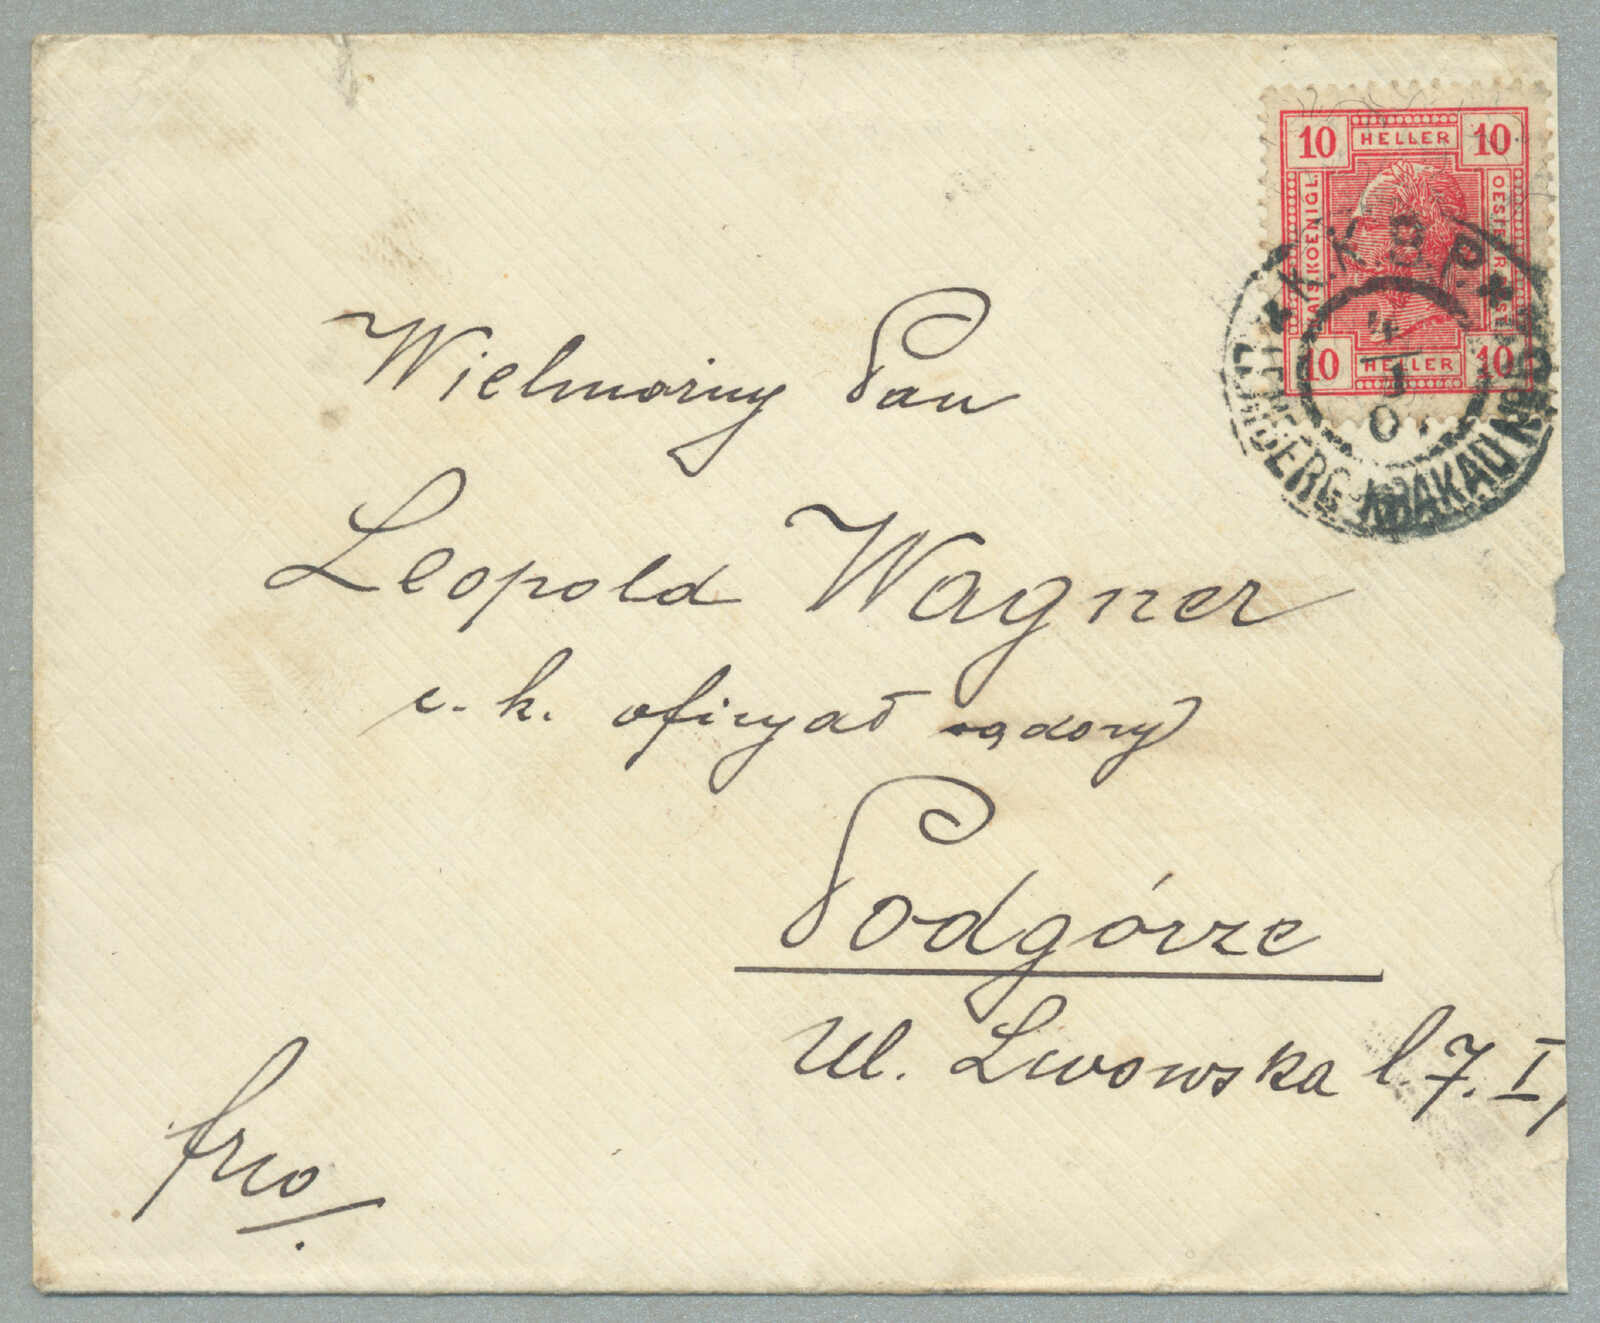 10 HELLER 10
KAIS. KOENIGL. OESTERR. POST
10 HELLER 10
K.K.O.P.
4
LEMBERG KRAKAU
Wielmożny Pan
Leopold Wagner
c. k. oficyał sądowy
Podgórze
Ul. Lwowska l. 7. I,
frco